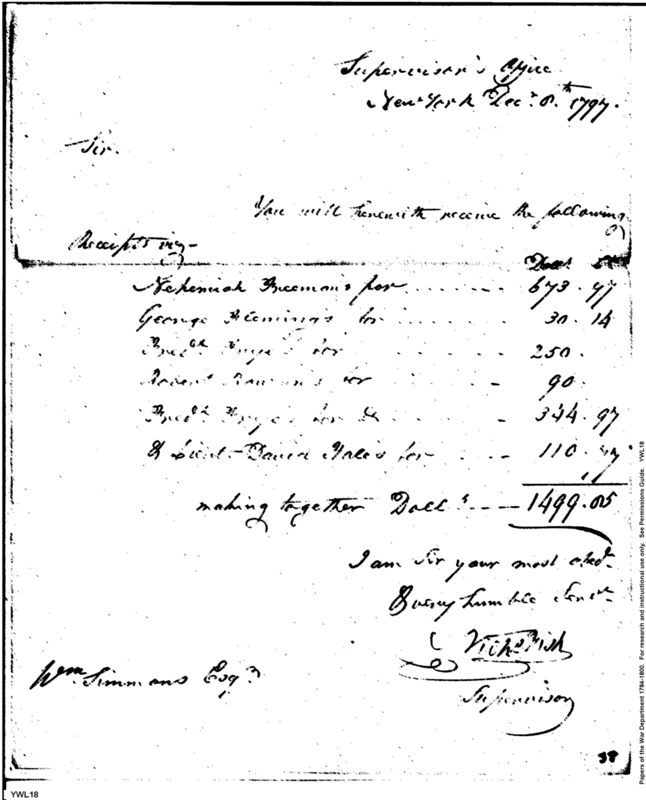 Supervisor's Office
New York Decr. 8th 1797.
Sir.
You will herewith receive the following
Receipts viz
Dolls Cts
Nehemiah Freeman's for 673.97
George Flemings for 30.14
Fredk. Frye's for 250.
Robert for 90
Fredk. Frye's for & 344.97
& Lieut. David for 110.
making together Dolls 1499.05
I am Sir your most obedt.
& very humble Servt.
Nichs Fish
Supervisor
Wm Simmons Esqr.
38
YWL18
Papers of the War Department 1784-1800. For research and instructional use only. See Permissions Guide. YWL18